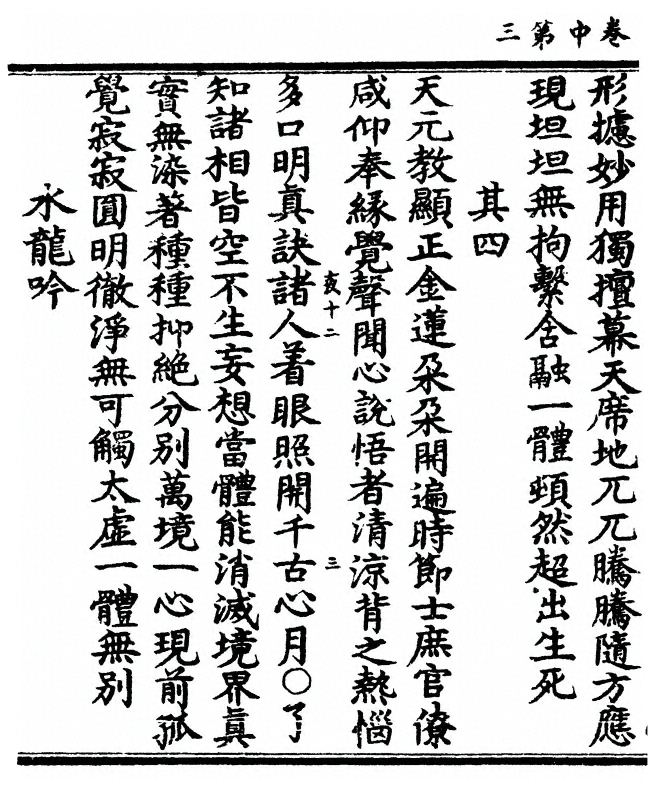 卷中第三
形攄妙用獨擅幕天席地兀兀騰騰隨方應
現坦坦無拘繫含融一體頞然超出生死
其四
天元教顯正金蓮朵朵開遍時節士庶官僚
咸仰奉緣覺聲聞心說悟者清涼背之熱惱
夜十二
三
多口明真訣諸人着眼照開千古心月〇了
知諸相皆空不生妄想當體能消滅境界真
實無染著種種抑絕分別萬境一心現前孤
覺寂寂圓明徹淨無可觸太虛一體無別
水龍吟